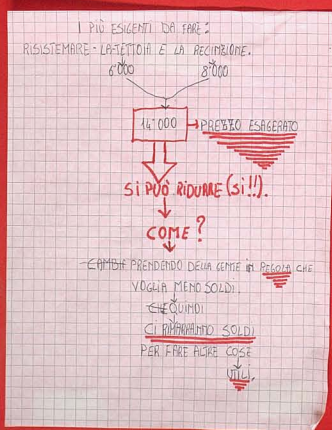 I PIÙ ESIGENTI DA FARE:
RISISTEMARE - LA TETTOIA E LA RECINZIONE.
6'000 8'000
14'000 → PREZZO ESAGERATO
SI PUÒ RIDURRE (SI!!).
COME?
CAMBIA PRENDENDO DELLA GENTE IN REGOLA CHE
VOGLIA MENO SOLDI.
CHE QUINDI
CI RIMARRANNO SOLDI
PER FARE ALTRE COSE
UTILI.